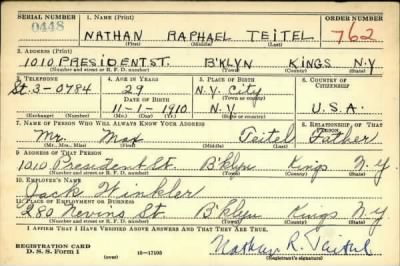 SERIAL NUMBER 1. NAME (Print) ORDER NUMBER
0448 NATHAN RAPHAEL TEITEL 762
(First) (Middle) (Last)
2. ADDRESS (Print)
1010 PRESIDENT ST. B'KLYN KINGS N.Y
(Number and street or R. F. D. number) (Town) (County) (State)
3. TELEPHONE 4. AGE IN YEARS 5. PLACE OF BIRTH 6. COUNTRY OF CITIZENSHIP
St. 3-0784 29 N.Y. City
DATE OF BIRTH (Town or county)
11-1-1910 N.Y U.S.A.
(Exchange) (Number) (Mo.) (Day) (Yr.) (State or country)
7. NAME OF PERSON WHO WILL ALWAYS KNOW YOUR ADDRESS 8. RELATIONSHIP OF THAT PERSON
Mr. Max Teitel Father
(Mr., Mrs., Miss) (First) (Middle) (Last)
9. ADDRESS OF THAT PERSON
1010 President St. B'klyn Kings N.Y
(Number and street or R. F. D. number) (Town) (County) (State)
10. EMPLOYER'S NAME
Jack Winkler
11. PLACE OF EMPLOYMENT OR BUSINESS
280 Nevins St. B'klyn Kings N.Y
(Number and street or R. F. D. number) (Town) (County) (State)
I AFFIRM THAT I HAVE VERIFIED ABOVE ANSWERS AND THAT THEY ARE TRUE.
REGISTRATION CARD Nathan R. Teitel
D. S. S. Form 1 (over) (Registrant's signature)